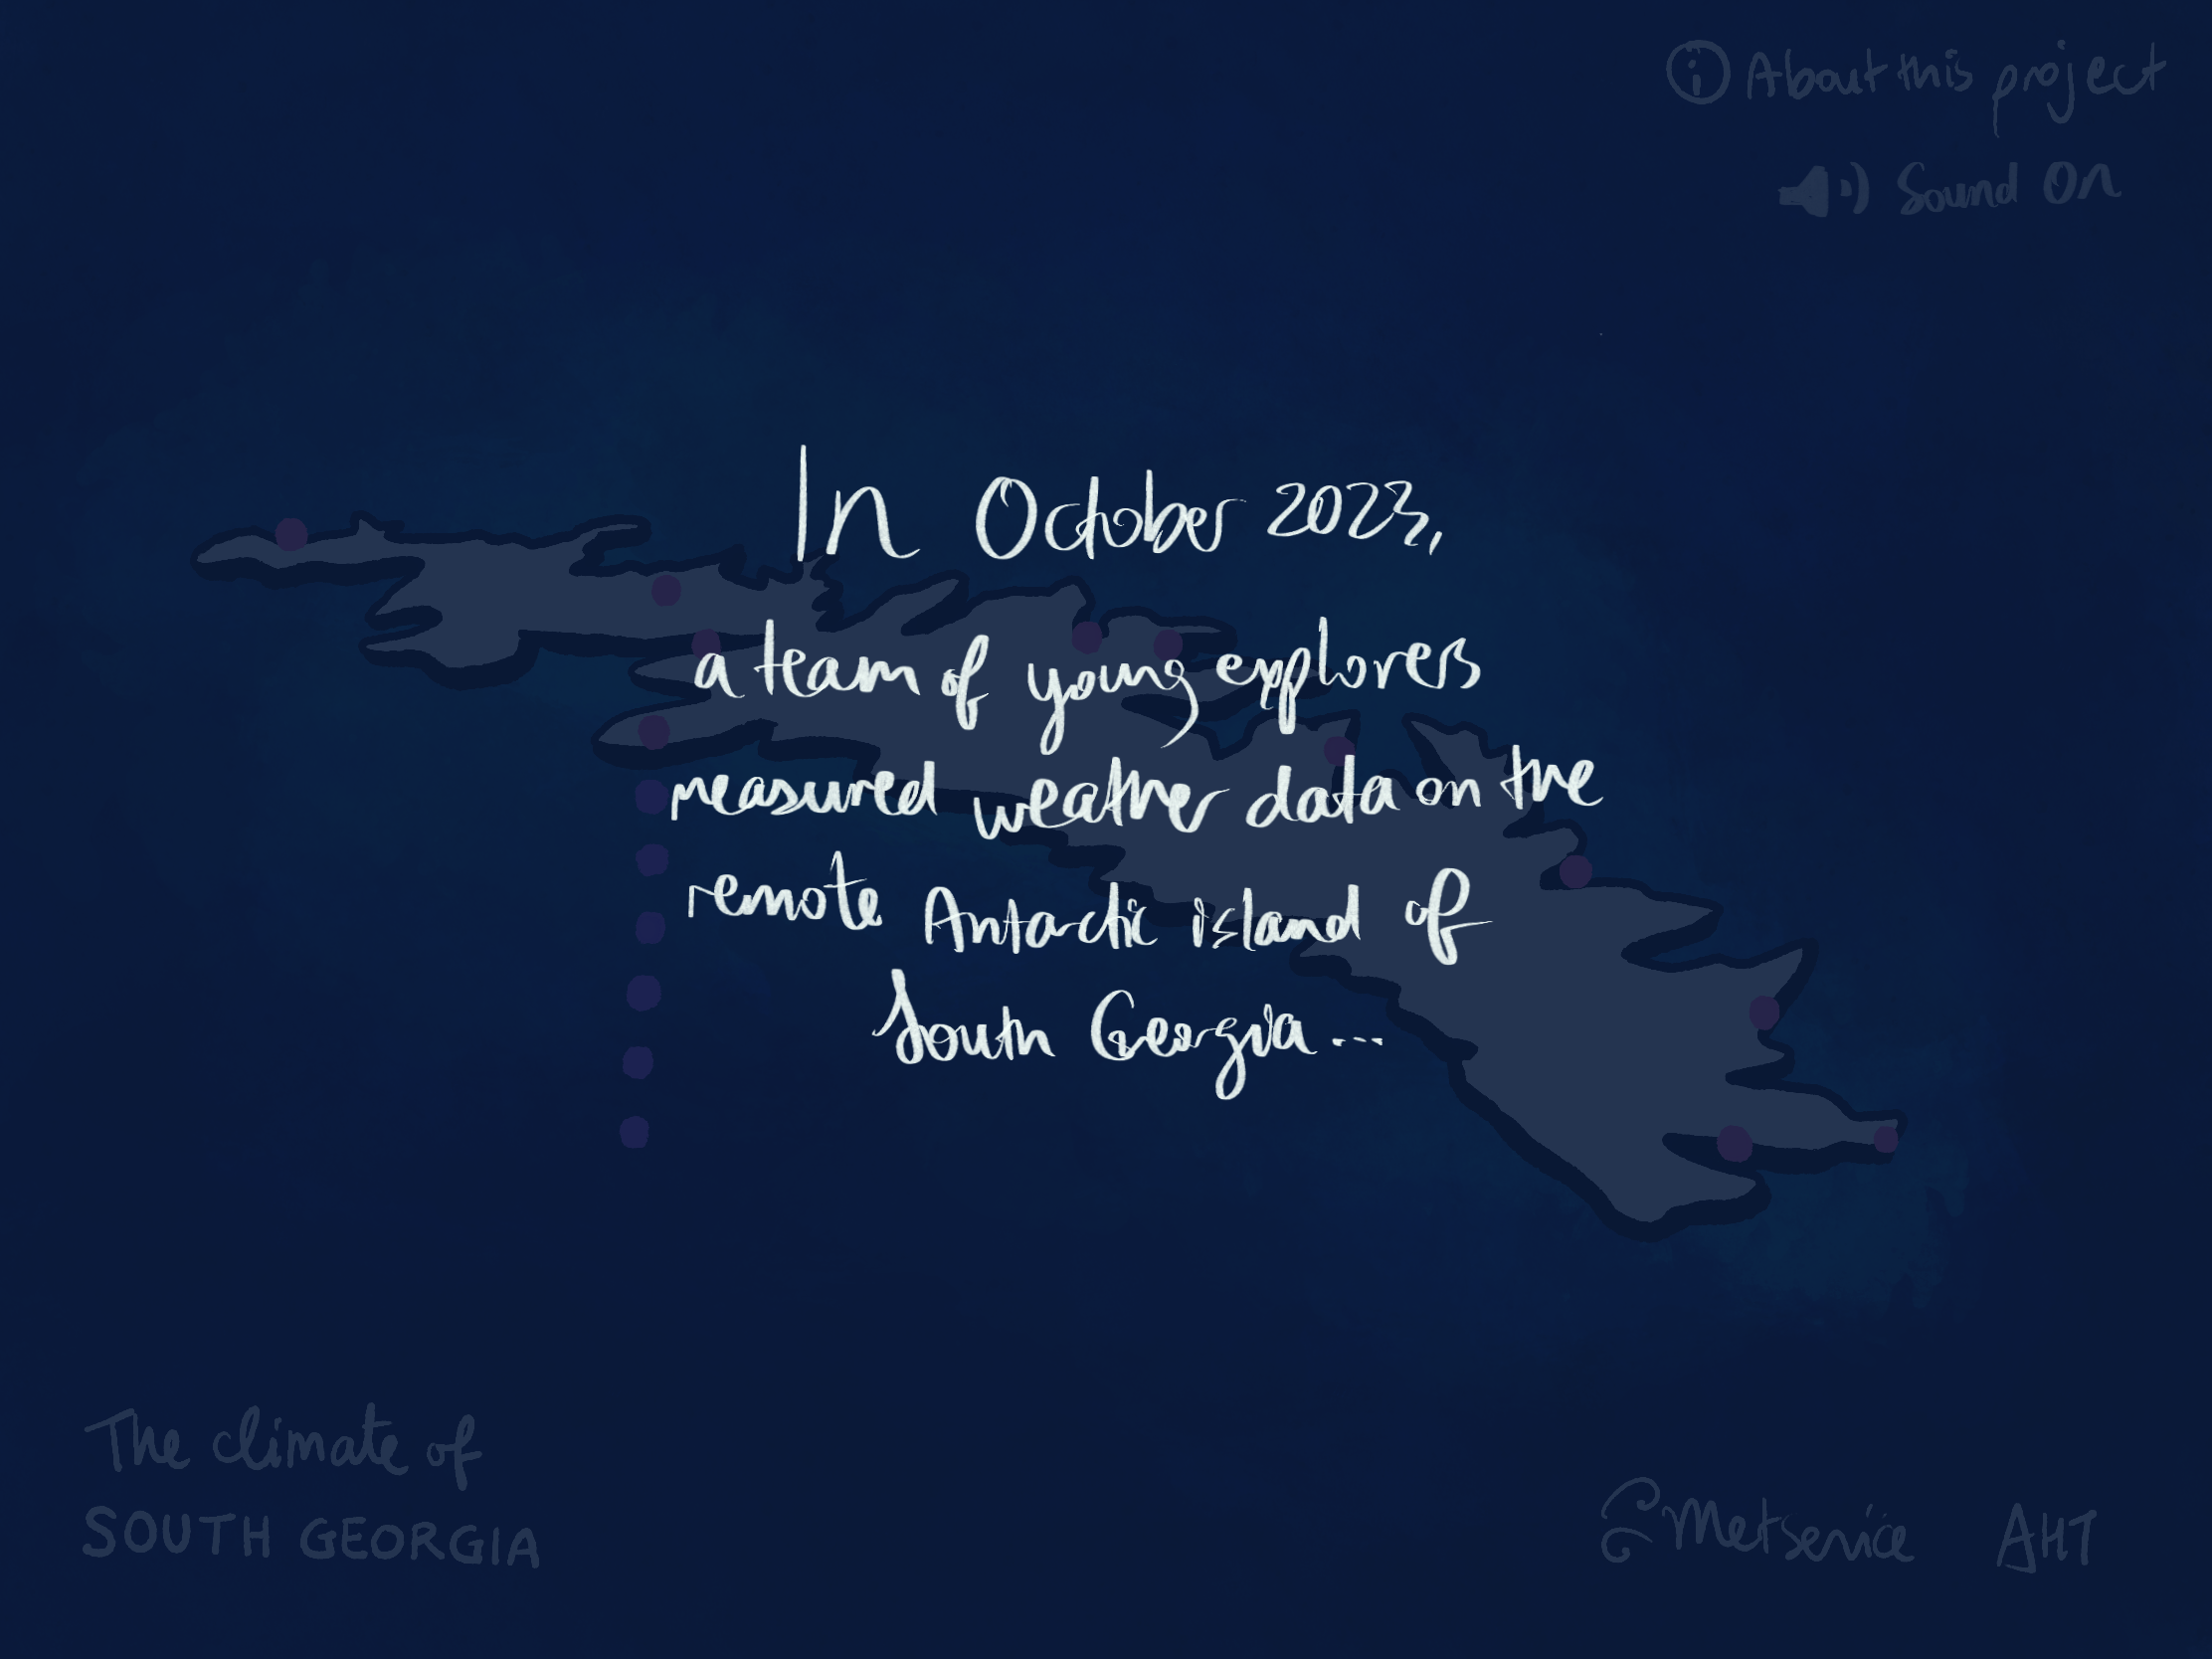 About this project
Sound On
In October 2023,
a team of young explorers
measured weather data on the
remote Antarctic island of
South Georgia...
The climate of
SOUTH GEORGIA
Metservice AHT